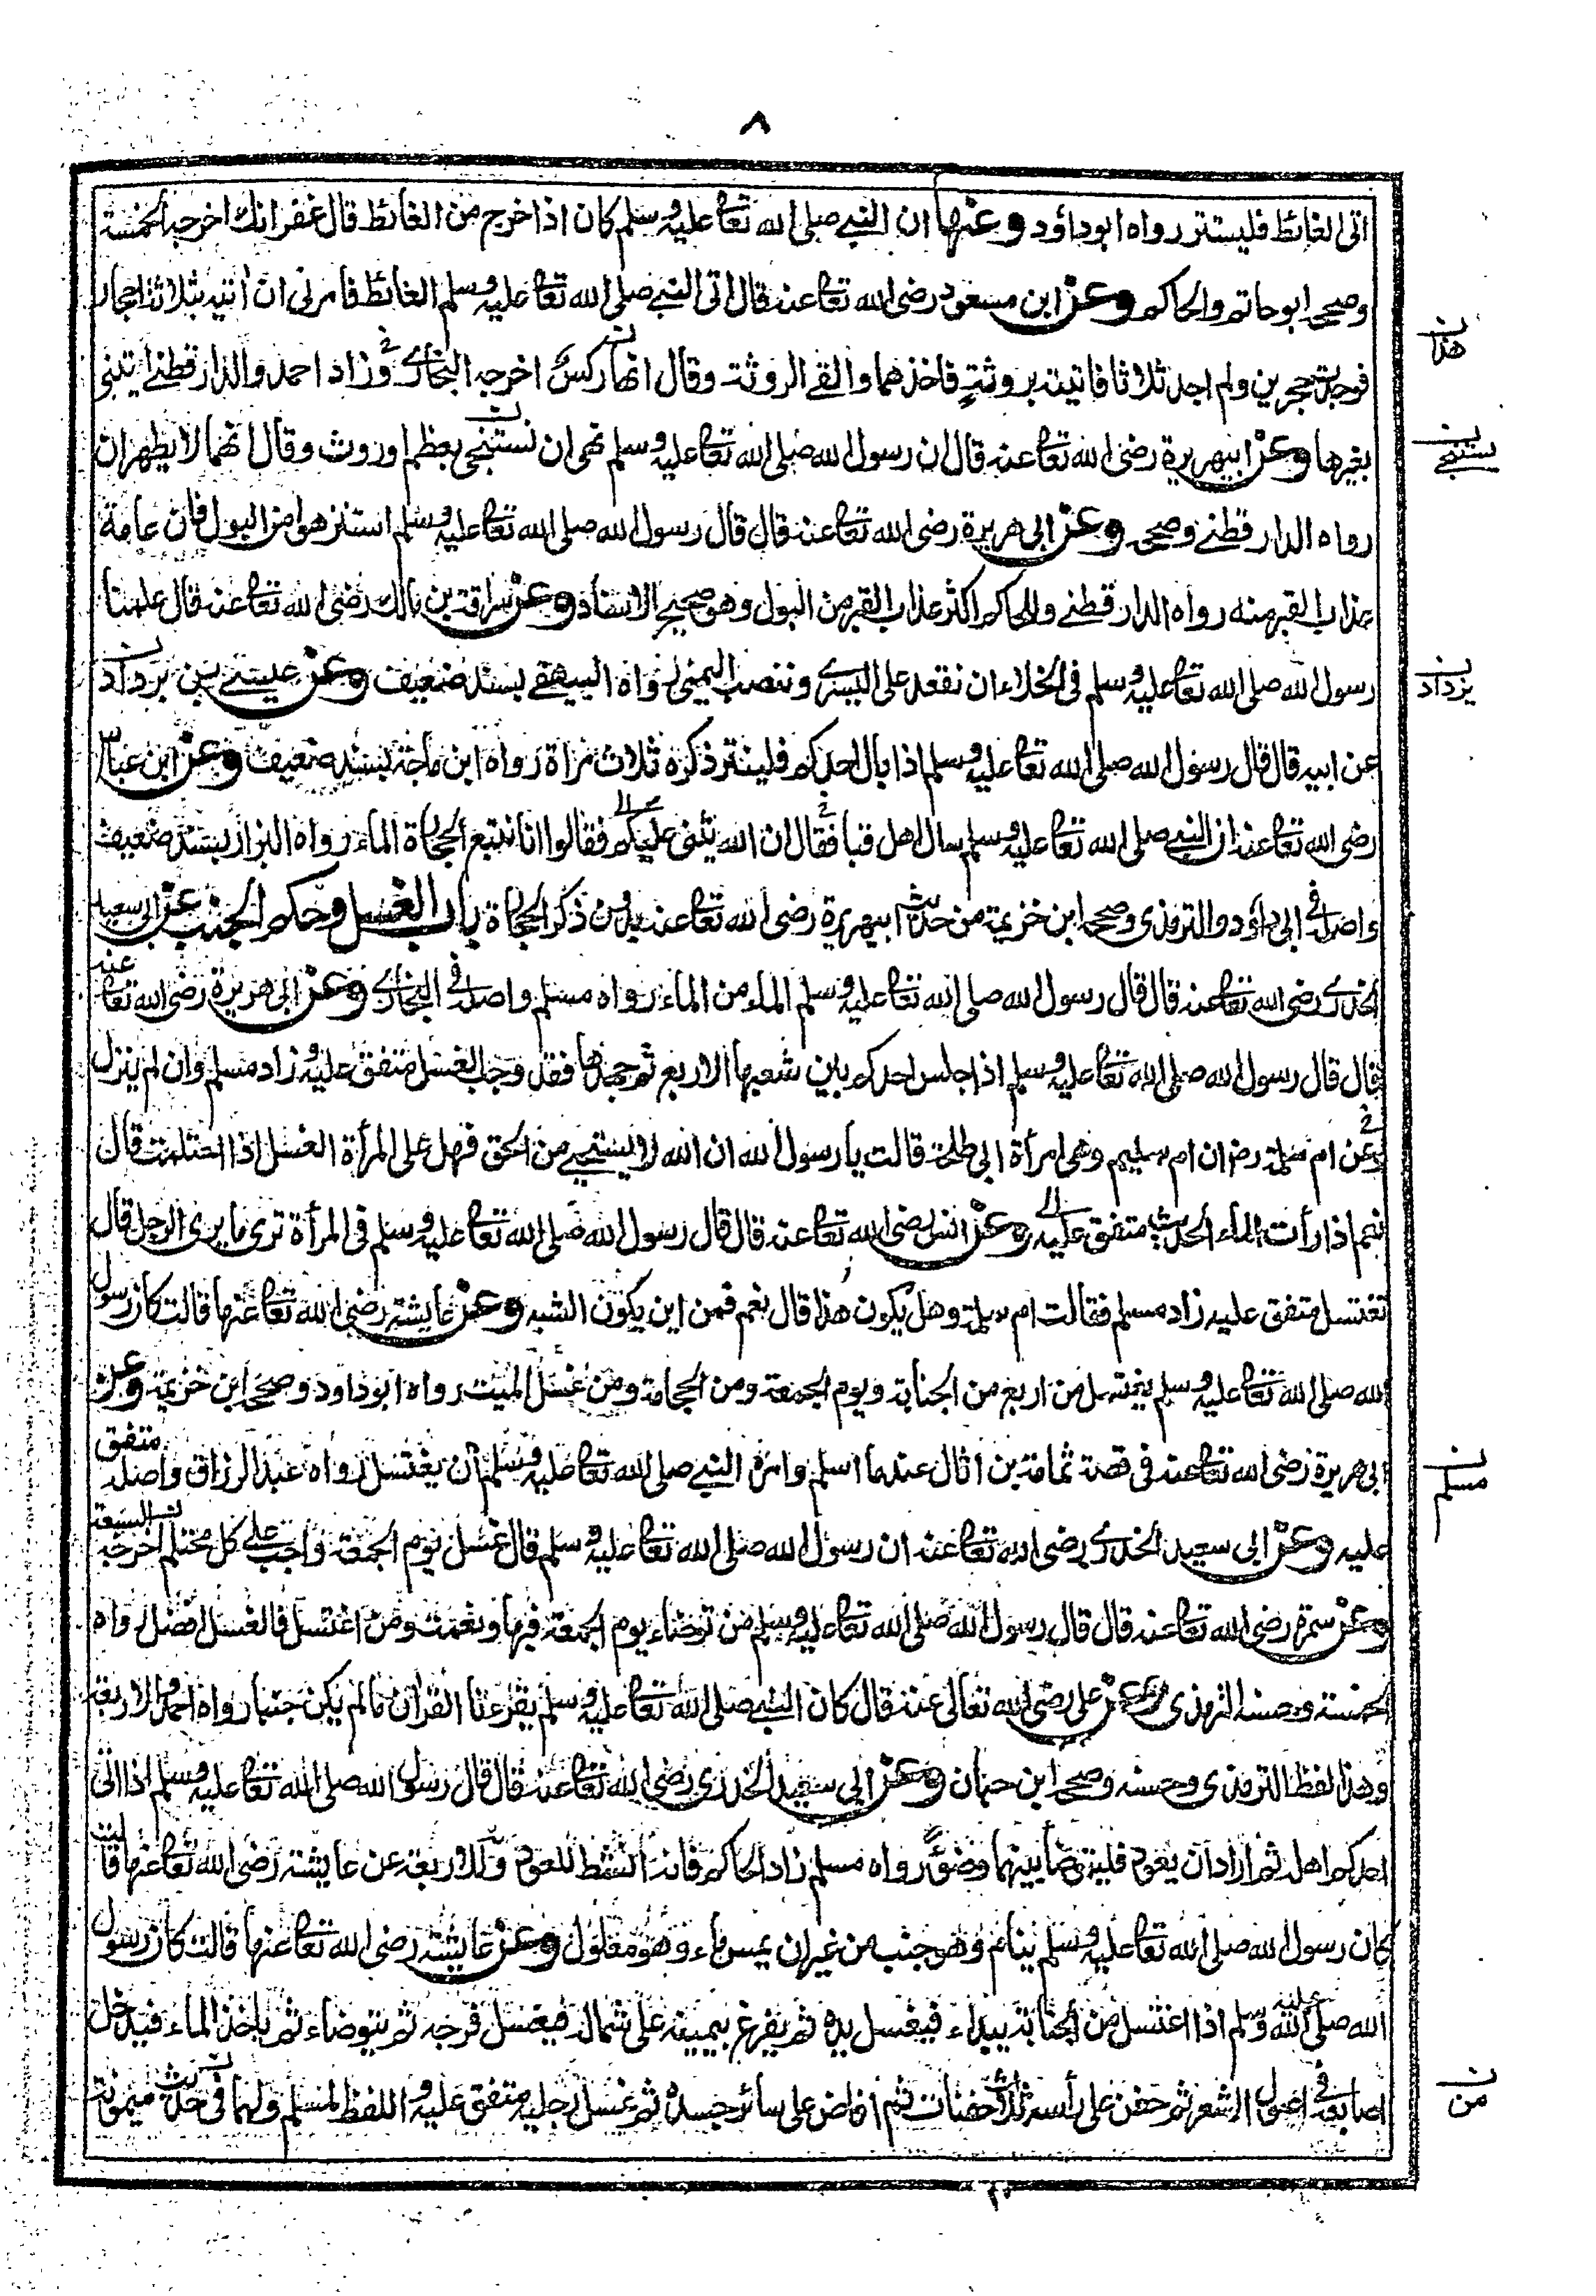 ٨
اتى الغائط فليستتر رواه ابوداؤد وعنها ان النبي صلى الله تعالى عليه وسلم كان اذا خرج من الغائط قال غفرانك اخرجه الخمسة
وصححه ابوحاتم والحاكم وعن ابن مسعود رضى الله تعالى عنه قال اتى النبي صلى الله تعالى عليه وسلم الغائط فامرنى ان اتيه بثلاثة احجار
هذا
فوجدت حجرين ولم اجد ثلاثا فاتيته بروثةٍ فاخذهما والقى الروثة وقال انها ركس اخرجه البخارى وزاد احمد والدارقطنى ايتنى
بغيرها وعن ابيهريرة رضى الله تعالى عنه قال ان رسول الله صلى الله تعالى عليه وسلم نهى ان نستنجى بعظم اوروث وقال انهما لا يطهران
يستنجى
رواه الدارقطنى وصححه وعن ابى هريرة رضى الله تعالى عنه قال قال رسول الله صلى الله تعالى عليه وسلم استنزهوا من البول فان عامة
عذاب القبر منه رواه الدارقطنى وللحاكم اكثر عذاب القبر من البول وهو صحيح الاسناد وعن سراقة بن مالك رضى الله تعالى عنه قال علمنا
رسول الله صلى الله تعالى عليه وسلم فى الخلاء ان نقعد على اليسرى وننصب اليمنى رواه البيهقى بسند ضعيف وعن عيسى بن برداد
يزداد
عن ابيه قال قال رسول الله صلى الله تعالى عليه وسلم اذا بال احدكم فلينتر ذكره ثلاث مراة رواه ابن ماجة بسند ضعيف وعن ابن عباس
رضى الله تعالى عنه ان النبي صلى الله تعالى عليه وسلم سال اهل قبا فقال ان الله يثنى عليكم فقالوا انا نتبع الحجارة الماء رواه البزار بسند ضعيف
واصله فى ابى داؤد والترمذى وصححه ابن خزيمة من حديث ابيهريرة رضى الله تعالى عنه بدون ذكر الحجارة باب الغسل وحكم الجنب عن ابى سعيد
الخدرى رضى الله تعالى عنه قال قال رسول الله صلى الله تعالى عليه وسلم الماء من الماء رواه مسلم واصله فى البخارى وعن ابى هريرة رضى الله تعالى عنه
قال قال رسول الله صلى الله تعالى عليه وسلم اذا جلس احدكم بين شعبها الاربع ثم جهدها فقد وجب الغسل متفق عليه وزاد مسلم وان لم ينزل
وعن ام سلمة رض ان ام سليم وهى امرأة ابى طلحة قالت يا رسول الله ان الله لا يستحيى من الحق فهل على المرأة الغسل اذا احتلمت قال
نعم اذا رأت الماء الحديث متفق عليه وعن انس رضى الله تعالى عنه قال قال رسول الله صلى الله تعالى عليه وسلم فى المرأة ترى ما يرى الرجل قال
تغتسل متفق عليه زاد مسلم فقالت ام سلمة وهل يكون هذا قال نعم فمن اين يكون الشبه وعن عايشة رضى الله تعالى عنها قالت كان رسول
الله صلى الله تعالى عليه وسلم يغتسل من اربع من الجنابة ويوم الجمعة ومن الحجامة ومن غسل الميت رواه ابوداود وصححه ابن خزيمة وعن
ابى هريرة رضى الله تعالى عنه فى قصة ثمامة بن اثال عندما اسلم وامره النبي صلى الله تعالى عليه وسلم ان يغتسل رواه عبد الرزاق واصله متفق
مسلم
عليه وعن ابى سعيد الخدرى رضى الله تعالى عنه ان رسول الله صلى الله تعالى عليه وسلم قال غسل يوم الجمعة واجب على كل محتلم اخرجه السبعة
وعن سمرة رضى الله تعالى عنه قال قال رسول الله صلى الله تعالى عليه وسلم من توضاء يوم الجمعة فبها ونعمت ومن اغتسل فالغسل افضل رواه
الخمسة وحسنه الترمذى وعن على رضى الله تعالى عنه قال كان النبي صلى الله تعالى عليه وسلم يقرءنا القرآن مالم يكن جنبا رواه احمد والاربعة
وهذا لفظ الترمذى وحسنه وصححه ابن حبان وعن ابى سعيد الخدرى رضى الله تعالى عنه قال قال رسول الله صلى الله تعالى عليه وسلم اذا اتى
احدكم اهله ثم اراد ان يعود فليتوضأ بينهما وضوءً رواه مسلم زاد الحاكم فانه انشط للعود وللاربعة عن عايشة رضى الله تعالى عنها قالت
كان رسول الله صلى الله تعالى عليه وسلم ينام وهو جنب من غير ان يمس ماء وهو معلول وعن عايشة رضى الله تعالى عنها قالت كان رسول
الله صلى الله عليه وسلم اذا اغتسل من الجنابة يبداء فيغسل يده ثم يفرغ بيمينه على شماله فيغسل فرجه ثم يتوضاء ثم ياخذ الماء فيدخل
اصابعه فى اصول الشعر ثم حفن على رأسه ثلاث حفنات ثم افاض على سائر جسده ثم غسل رجليه متفق عليه واللفظ لمسلم ولهما فى حديث ميمونة
من